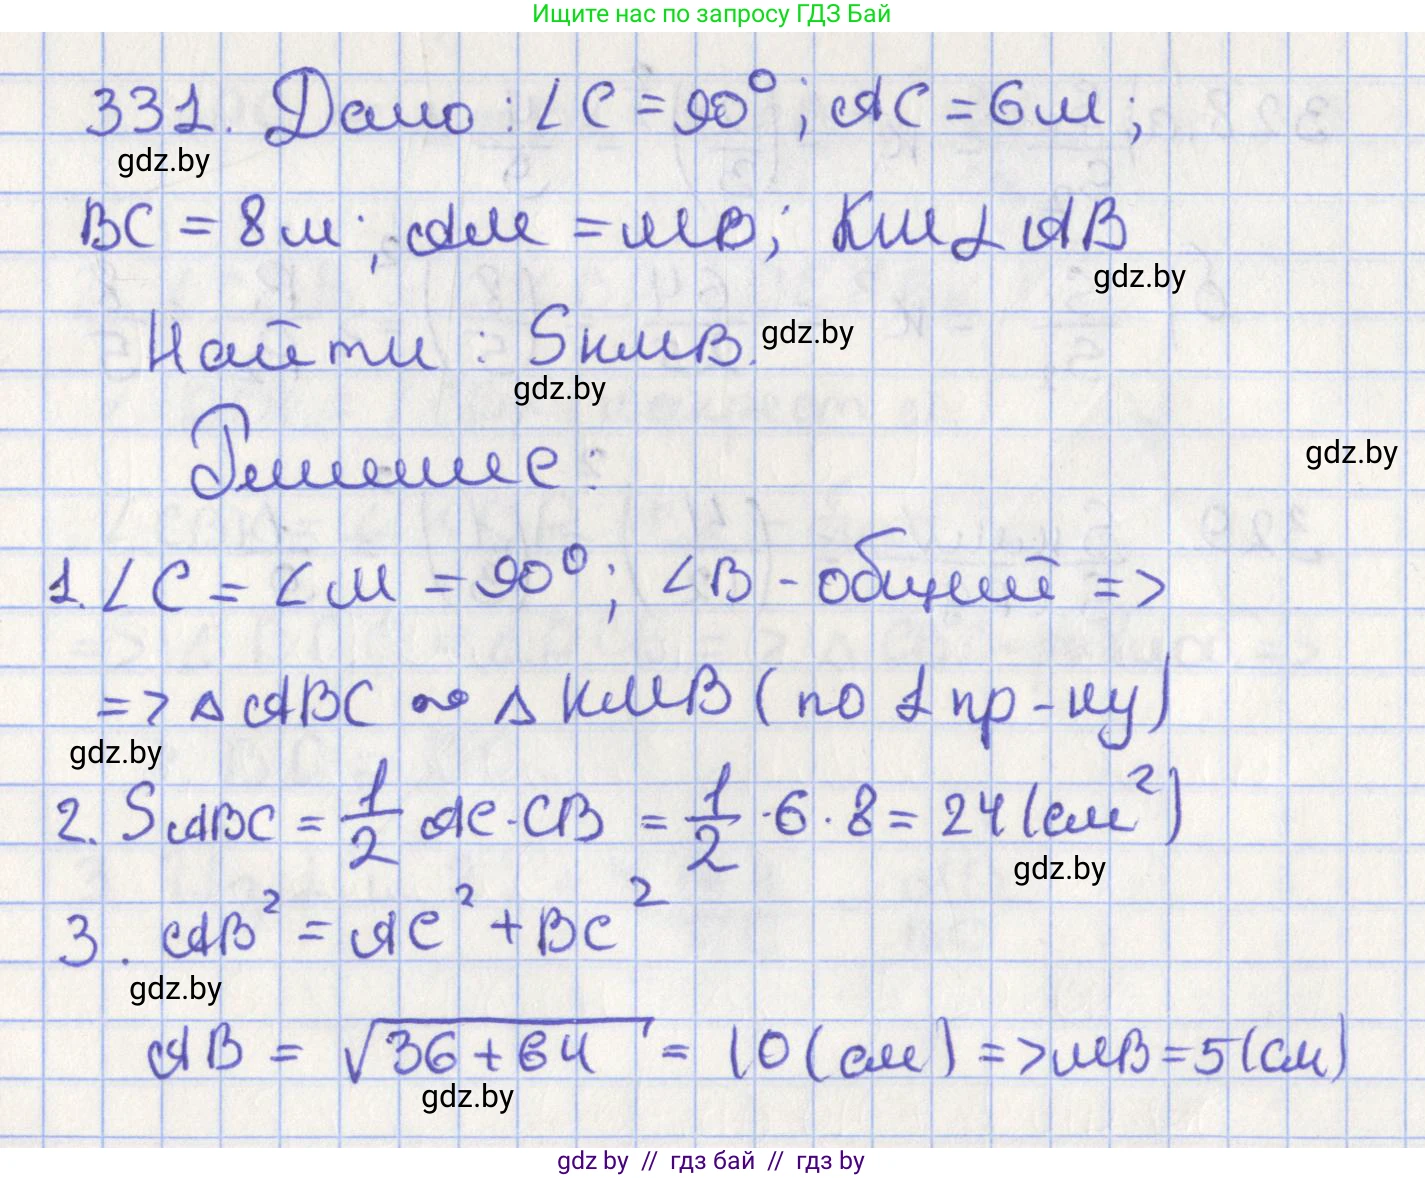 Ищите нас по запросу ГДЗ Бай
331. Дано: ∠C = 90°; AC = 6 м;
gdz.by
BC = 8 м; AM = MB; KM ⊥ AB
gdz.by
Найти: S KMB.
gdz.by
gdz.by
Решение:
gdz.by
1. ∠C = ∠M = 90°; ∠B - общий =>
=> △ ABC ~ △ KMB (по 1 пр-ку)
gdz.by
2. S ABC = 1/2 AC · CB = 1/2 · 6 · 8 = 24 (см²)
gdz.by
3. AB² = AC² + BC²
gdz.by
AB = √36 + 64 = 10 (см) => MB = 5 (см)
gdz.by
gdz by // гдз бай // гдз by